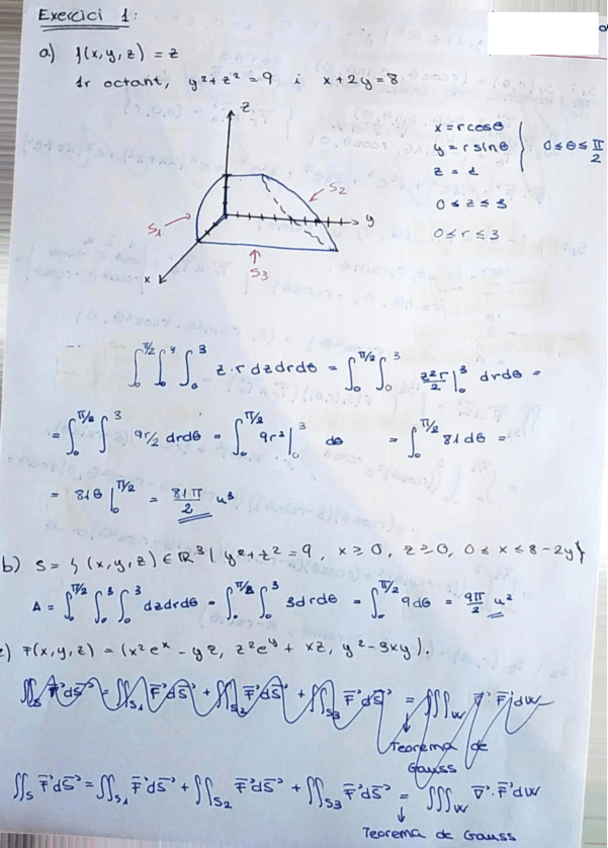 Exercici 1:
a) f(x,y,z) = z
1r octant, y²+z² = 9 i x+2y = 8
z
x = r cosθ
y = r sinθ
z = z
0 ≤ θ ≤ π/2
0 ≤ z ≤ 3
0 ≤ r ≤ 3
S₁
S₂
y
x
S₃
∫₀^π/2 ∫₀ ∫₀³ z·r dzdrdθ = ∫₀^π/2 ∫₀³ z²r/2 |₀³ drdθ =
= ∫₀^π/2 ∫₀³ 9r/2 drdθ = ∫₀^π/2 9r² |₀³ dθ = ∫₀^π/2 81 dθ =
= 81θ |₀^π/2 = 81π/2 u³
b) S = { (x,y,z) ∈ ℝ³ | y²+z² = 9, x ≥ 0, z ≥ 0, 0 ≤ x ≤ 8-2y}
A = ∫₀^π/2 ∫₀³ ∫₀³ dzdrdθ = ∫₀^π/2 ∫₀³ 3drdθ = ∫₀^π/2 9dθ = 9π/2 u²
c) F(x,y,z) = (x²eˣ - yz, z²eʸ + xz, y² - 3xy).
∬_S F dS = ∬_S₁ F dS + ∬_S₂ F dS + ∬_S₃ F dS = ∭_W ∇·F dW
Teorema de
Gauss
∬_S F dS = ∬_S₁ F dS + ∬_S₂ F dS + ∬_S₃ F dS = ∭_W ∇·F dW
Teorema de Gauss